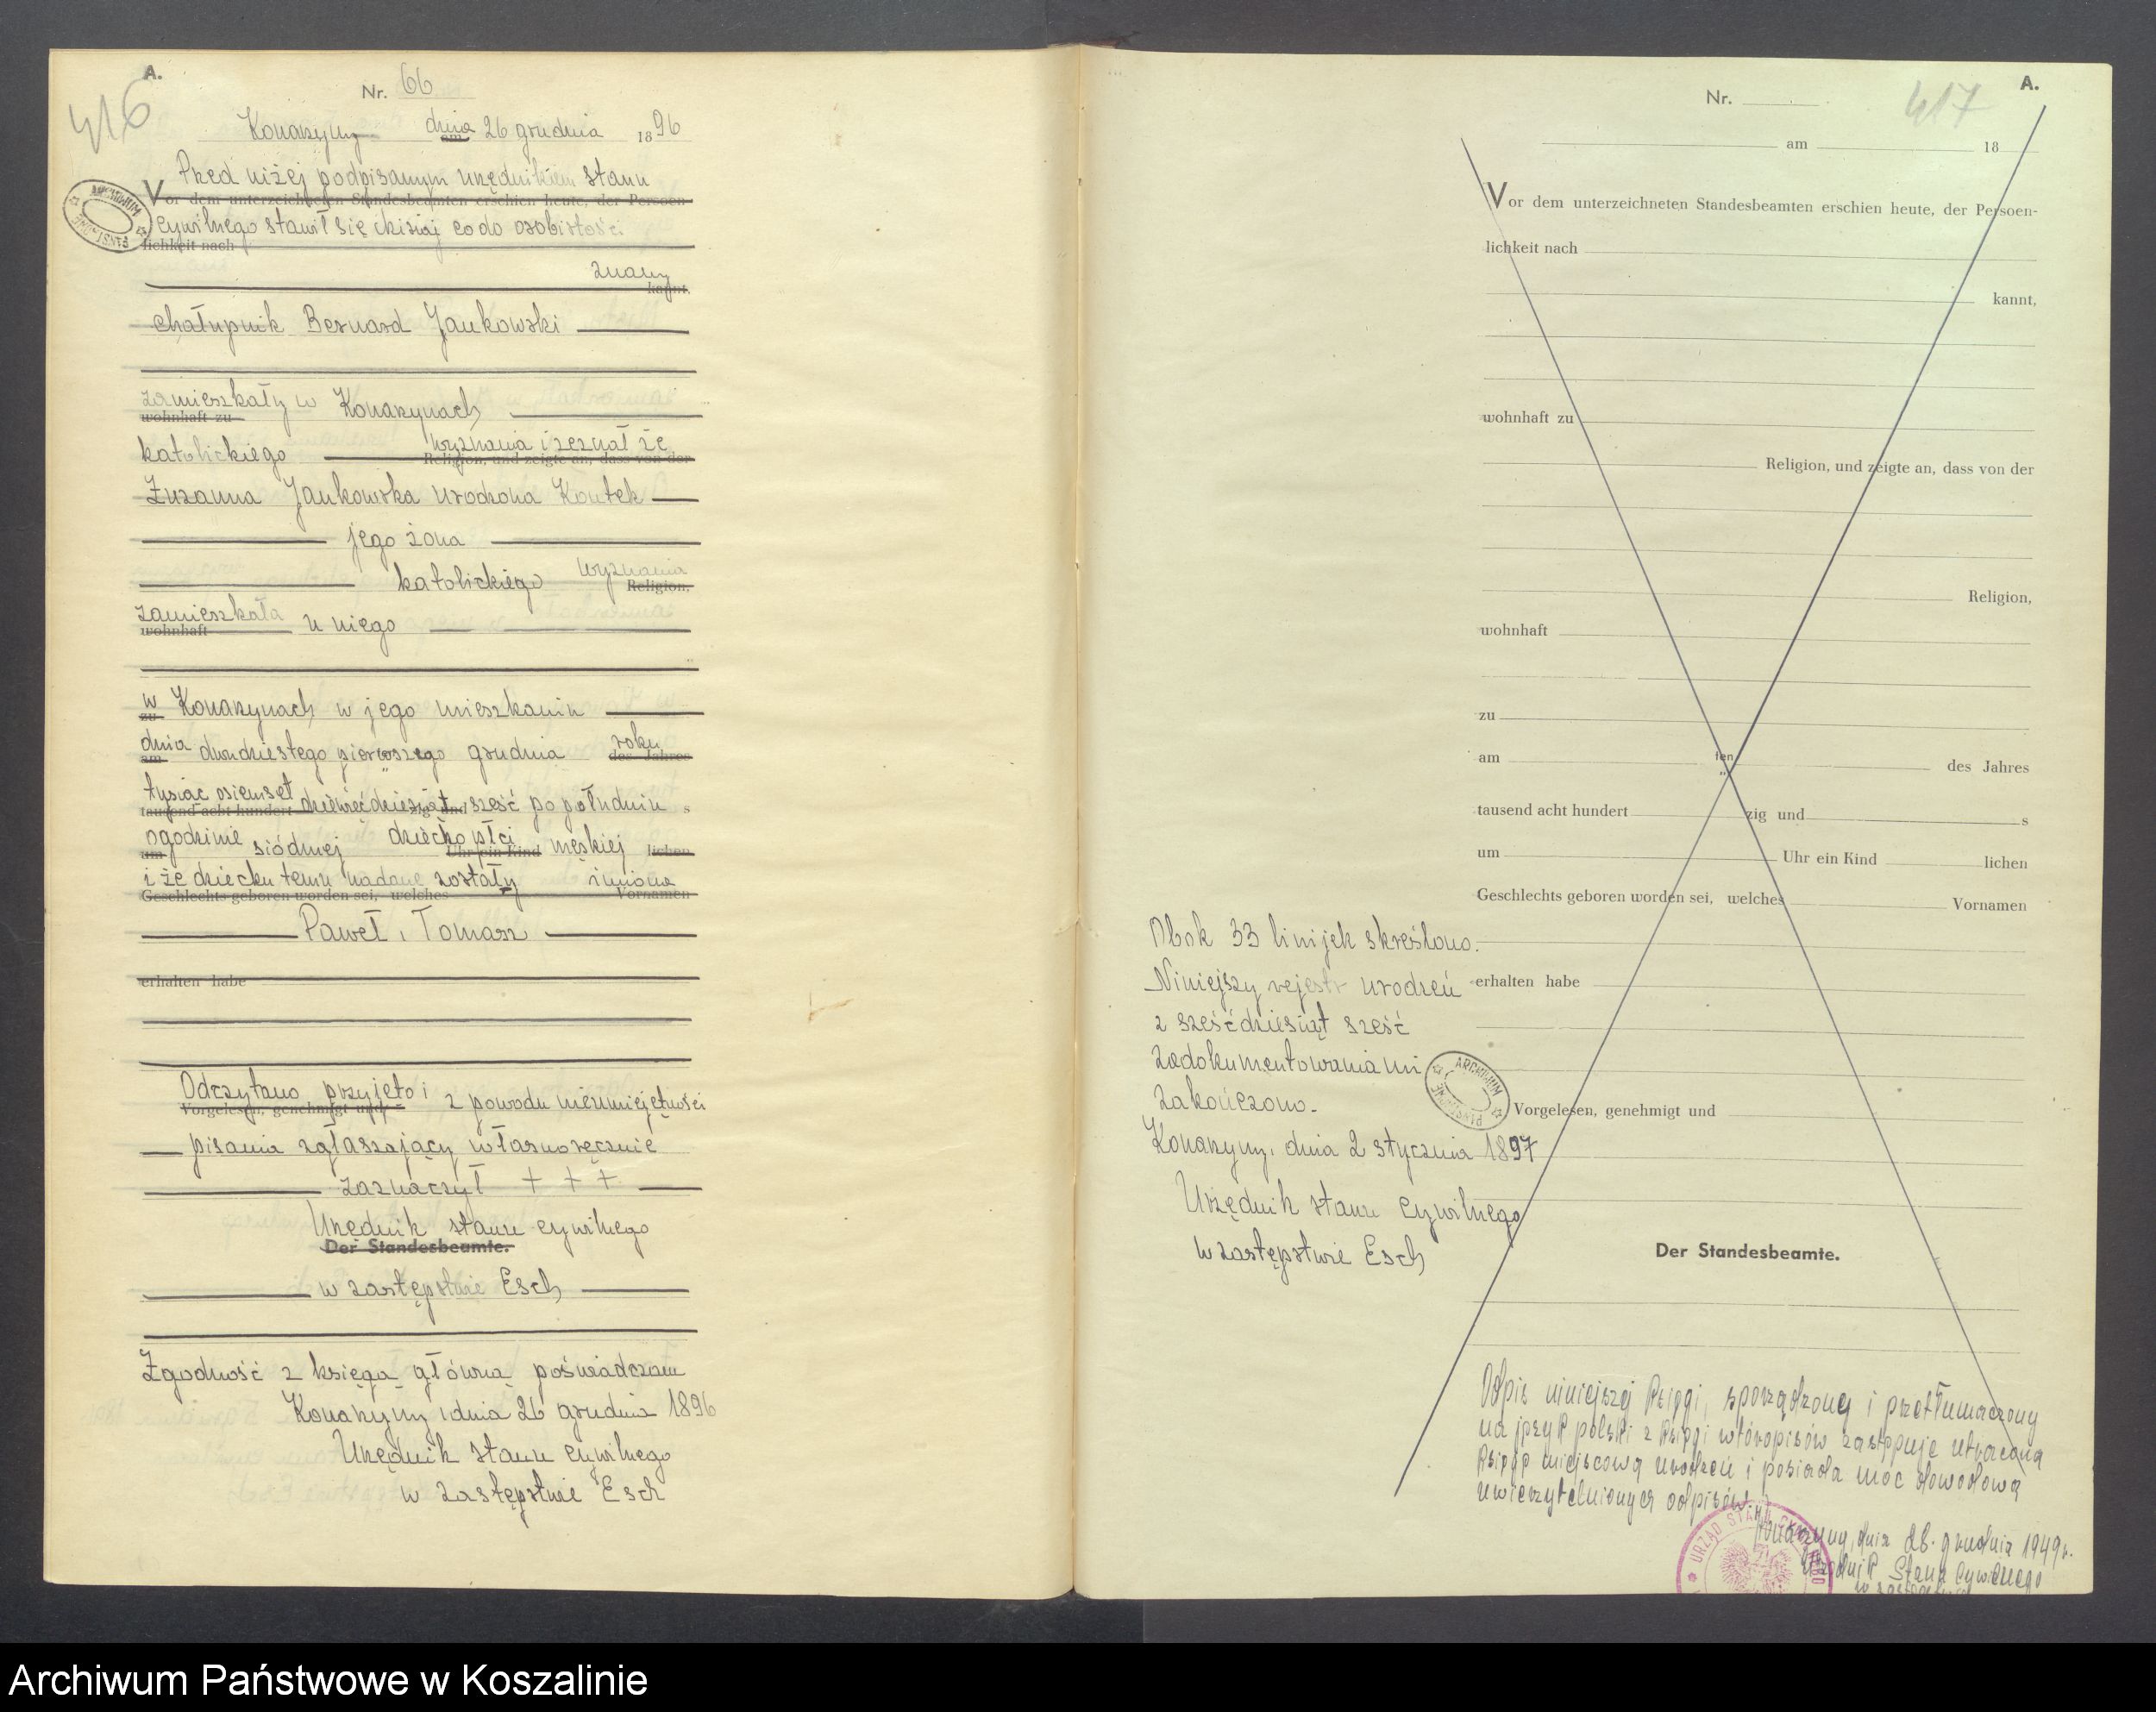 A.
416
Nr. 66
Konarzyny dnia am 26 grudnia 1896
Przed niżej podpisanym urzędnikiem stanu
Vor dem unterzeichneten Standesbeamten erschien heute, der Persoen-
cywilnego stawił się dzisiaj co do osobistości
lichkeit nach
znany
kannt,
chałupnik Bernard Jankowski
zamieszkały w Konarzynach
wohnhaft zu
wyznania i zeznał że
katolickiego Religion, und zeigte an, dass von der
Zuzanna Jankowska urodzona Kontek
jego żona
katolickiego wyznania
Religion,
zamieszkała u niego
wohnhaft
w Konarzynach w jego mieszkaniu
zu
dnia dwudziestego pierwszego grudnia roku
am des Jahres
tysiąc osiemset dziewięćdziesiąt sześć po południu
tausend acht hundert zig und s
o godzinie siódmej dziecko płci męskiej
um Uhr ein Kind lichen
i że dziecku temu nadane zostały imiona
Geschlechts geboren worden sei, welches Vornamen
Paweł, Tomasz
erhalten habe
Odczytano przyjęto i z powodu nieumiejętności
Vorgelesen, genehmigt und
pisania zgłaszający własnoręcznie
zaznaczył + + +
Urzędnik stanu cywilnego
Der Standesbeamte.
w zastępstwie Esch
Zgodność z księgą główną poświadczam
Konarzyny, dnia 26 grudnia 1896
Urzędnik stanu cywilnego
w zastępstwie Esch
ARCHIWUM PAŃSTWOWE
A.
417
Nr.
am 18
Vor dem unterzeichneten Standesbeamten erschien heute, der Persoen-
lichkeit nach
kannt,
wohnhaft zu
Religion, und zeigte an, dass von der
Religion,
wohnhaft
zu
am ten des Jahres
tausend acht hundert zig und s
um Uhr ein Kind lichen
Geschlechts geboren worden sei, welches Vornamen
erhalten habe
Vorgelesen, genehmigt und
Der Standesbeamte.
Obok 33 linijek skreślono.
Niniejszy rejestr urodzeń
z sześćdziesiąt sześć
zadokumentowaniami
zakończono.
Konarzyny, dnia 2 stycznia 1897
Urzędnik stanu cywilnego
w zastępstwie Esch
ARCHIWUM PAŃSTWOWE
Odpis niniejszej księgi, sporządzony i przetłumaczony
na język polski z księgi wtóropisów zastępuje utraconą
księgę miejscową urodzeń i posiada moc dowodową
uwierzytelnionych odpisów.
Konarzyny, dnia 28. grudnia 1949 r.
Urzędnik Stanu Cywilnego
w zastępstwie
URZĄD STANU CYWILNEGO
Archiwum Państwowe w Koszalinie